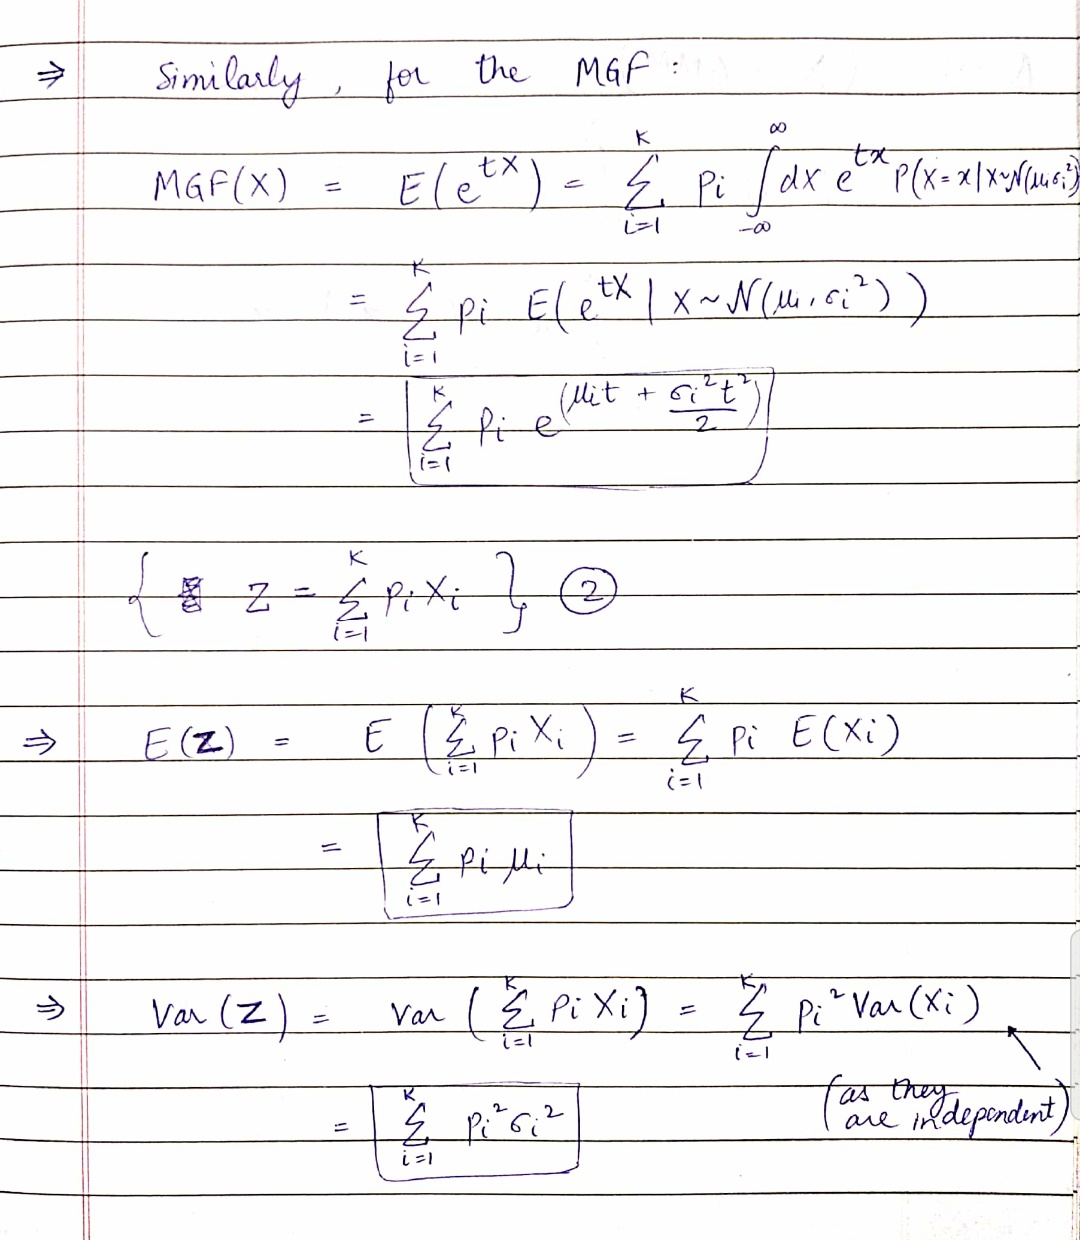 ⇒ Similarly, for the MGF :
MGF(X) = E(e^{tX}) = \sum_{i=1}^{K} p_i \int_{-∞}^{∞} dx e^{tx} P(X=x | X~N(μ_i, σ_i²))
= \sum_{i=1}^{K} p_i E(e^{tX} | X~N(μ_i, σ_i²))
= \sum_{i=1}^{K} p_i e^{(μ_i t + \frac{σ_i² t²}{2})}
{ Z = \sum_{i=1}^{K} p_i X_i } ②
⇒ E(Z) = E (\sum_{i=1}^{K} p_i X_i) = \sum_{i=1}^{K} p_i E(X_i)
= \sum_{i=1}^{K} p_i μ_i
⇒ Var(Z) = Var (\sum_{i=1}^{K} p_i X_i) = \sum_{i=1}^{K} p_i² Var(X_i)
(as they
are independent)
= \sum_{i=1}^{K} p_i² σ_i²